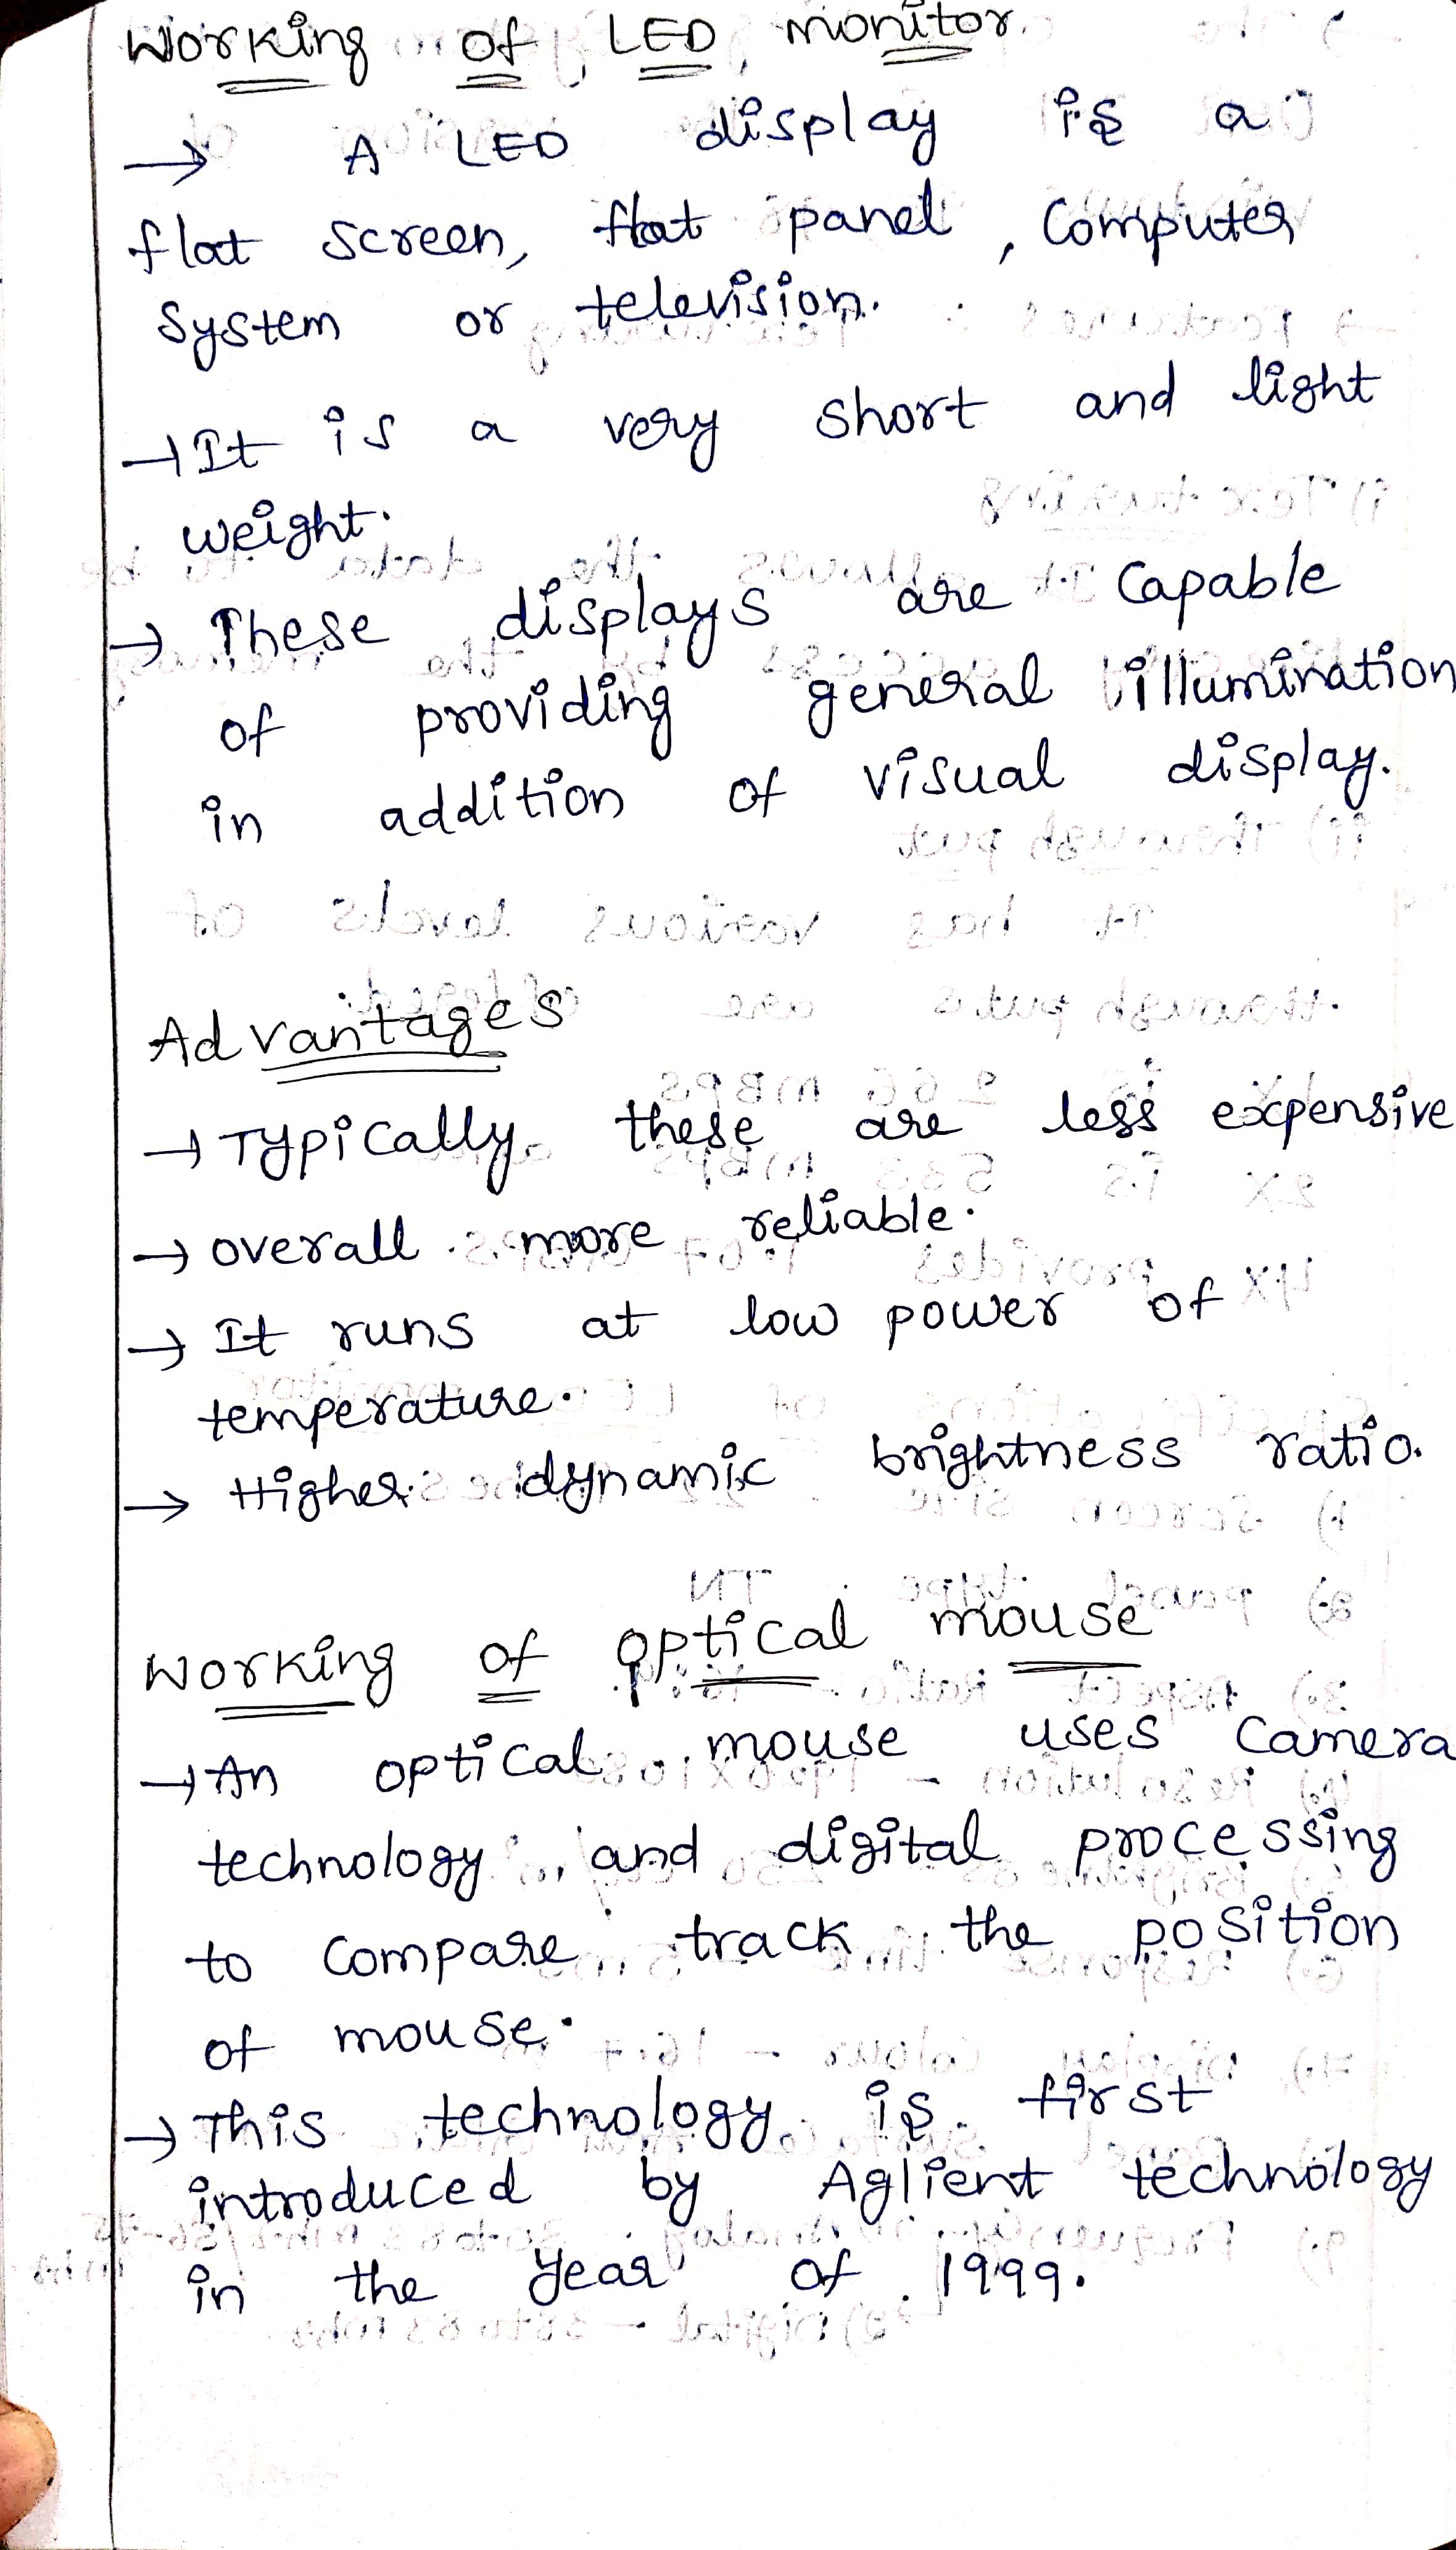 Working of LED monitor.
→ A LED display is a
flat screen, flat panel, Computer
System or television.
→ It is a very short and light
weight.
→ These displays are Capable
of providing general illumination
in addition of visual display.
Advantages
→ Typically these are less expensive
→ overall more reliable.
→ It runs at low power of
temperature.
→ Higher dynamic brightness ratio.
Working of optical mouse
→ An optical mouse uses Camera
technology and digital processing
to compare track the position
of mouse.
→ This technology is first
introduced by Aglient technology
in the year of 1999.